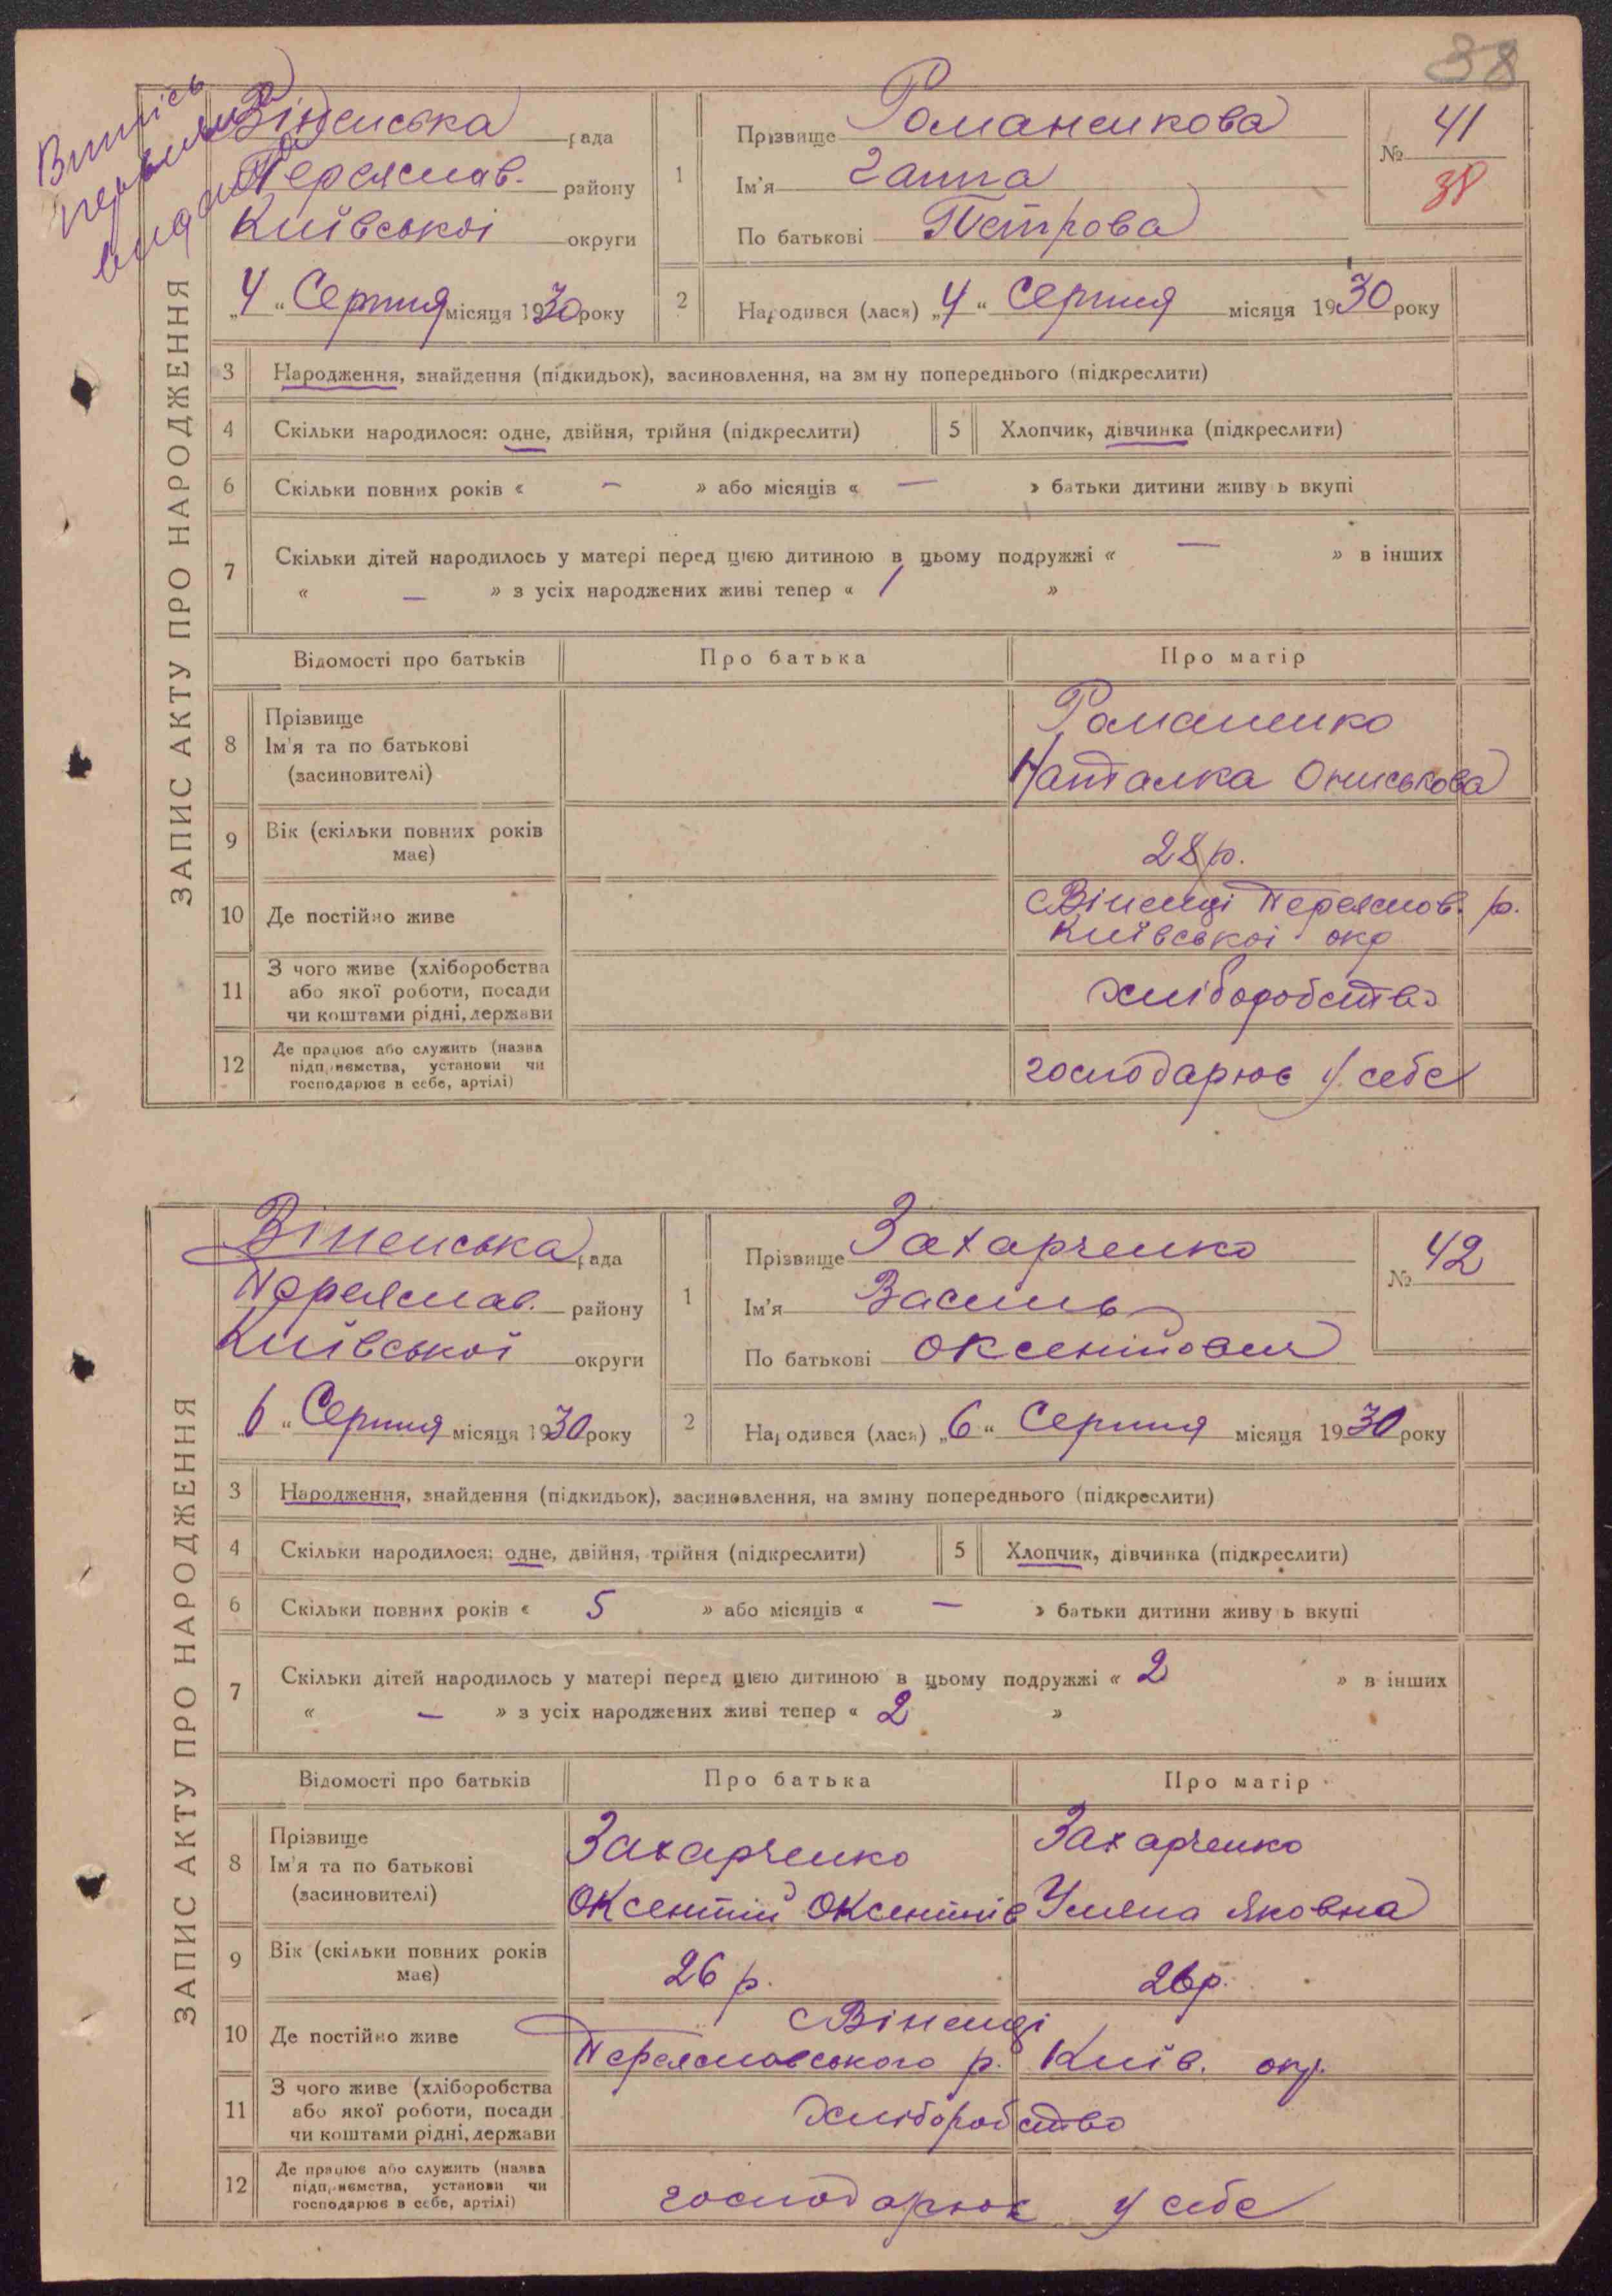 38
Випись
первисна
видана
ЗАПИС АКТУ ПРО НАРОДЖЕННЯ
Віненська рада
Переяслав. району
Київської округи
„4“ Серпня місяця 1930 року
1 Прізвище Романенкова
Ім'я Ганна
По батькові Петрова
№ 41
38
2 Народився (лася) „4“ Серпня місяця 1930 року
3 Народження, знайдення (підкидьок), засиновлення, на зм ну попереднього (підкреслити)
4 Скільки народилося: одне, двійня, трійня (підкреслити) 5 Хлопчик, дівчинка (підкреслити)
6 Скільки повних років « — » або місяців « — » батьки дитини живу ь вкупі
7 Скільки дітей народилось у матері перед цією дитиною в цьому подружжі « — » в інших
« — » з усіх народжених живі тепер « 1 »
Відомості про батьків Про батька Про матір
8 Прізвище
Ім'я та по батькові
(засиновителі)
Романенко
Наталка Ониськова
9 Вік (скільки повних років
має)
28 р.
10 Де постійно живе
с Віненці Переяслов. р.
Київської окр
11 З чого живе (хліборобства
або якої роботи, посади
чи коштами рідні, держави
хліборобство
12 Де працює або служить (назва
підприємства, установи чи
господарює в себе, артілі)
господарює у себе
ЗАПИС АКТУ ПРО НАРОДЖЕННЯ
Віненська рада
Переяслав. району
Київської округи
„6“ Серпня місяця 1930 року
1 Прізвище Захарченко
Ім'я Василь
По батькові Оксентійович
№ 42
2 Народився (лася) „6“ Серпня місяця 1930 року
3 Народження, знайдення (підкидьок), засиновлення, на зміну попереднього (підкреслити)
4 Скільки народилося: одне, двійня, трійня (підкреслити) 5 Хлопчик, дівчинка (підкреслити)
6 Скільки повних років « 5 » або місяців « — » батьки дитини живу ь вкупі
7 Скільки дітей народилось у матері перед цією дитиною в цьому подружжі « 2 » в інших
« — » з усіх народжених живі тепер « 2 »
Відомості про батьків Про батька Про матір
8 Прізвище
Ім'я та по батькові
(засиновителі)
Захарченко Захарченко
Оксентій Оксентіїв Уляна Яковна
9 Вік (скільки повних років
має)
26 р. 26 р.
10 Де постійно живе
с Віненці
Переясловського р. Київ. окр.
11 З чого живе (хліборобства
або якої роботи, посади
чи коштами рідні, держави
Хліборобство
12 Де працює або служить (назва
підприємства, установи чи
господарює в себе, артілі)
господарює у себе